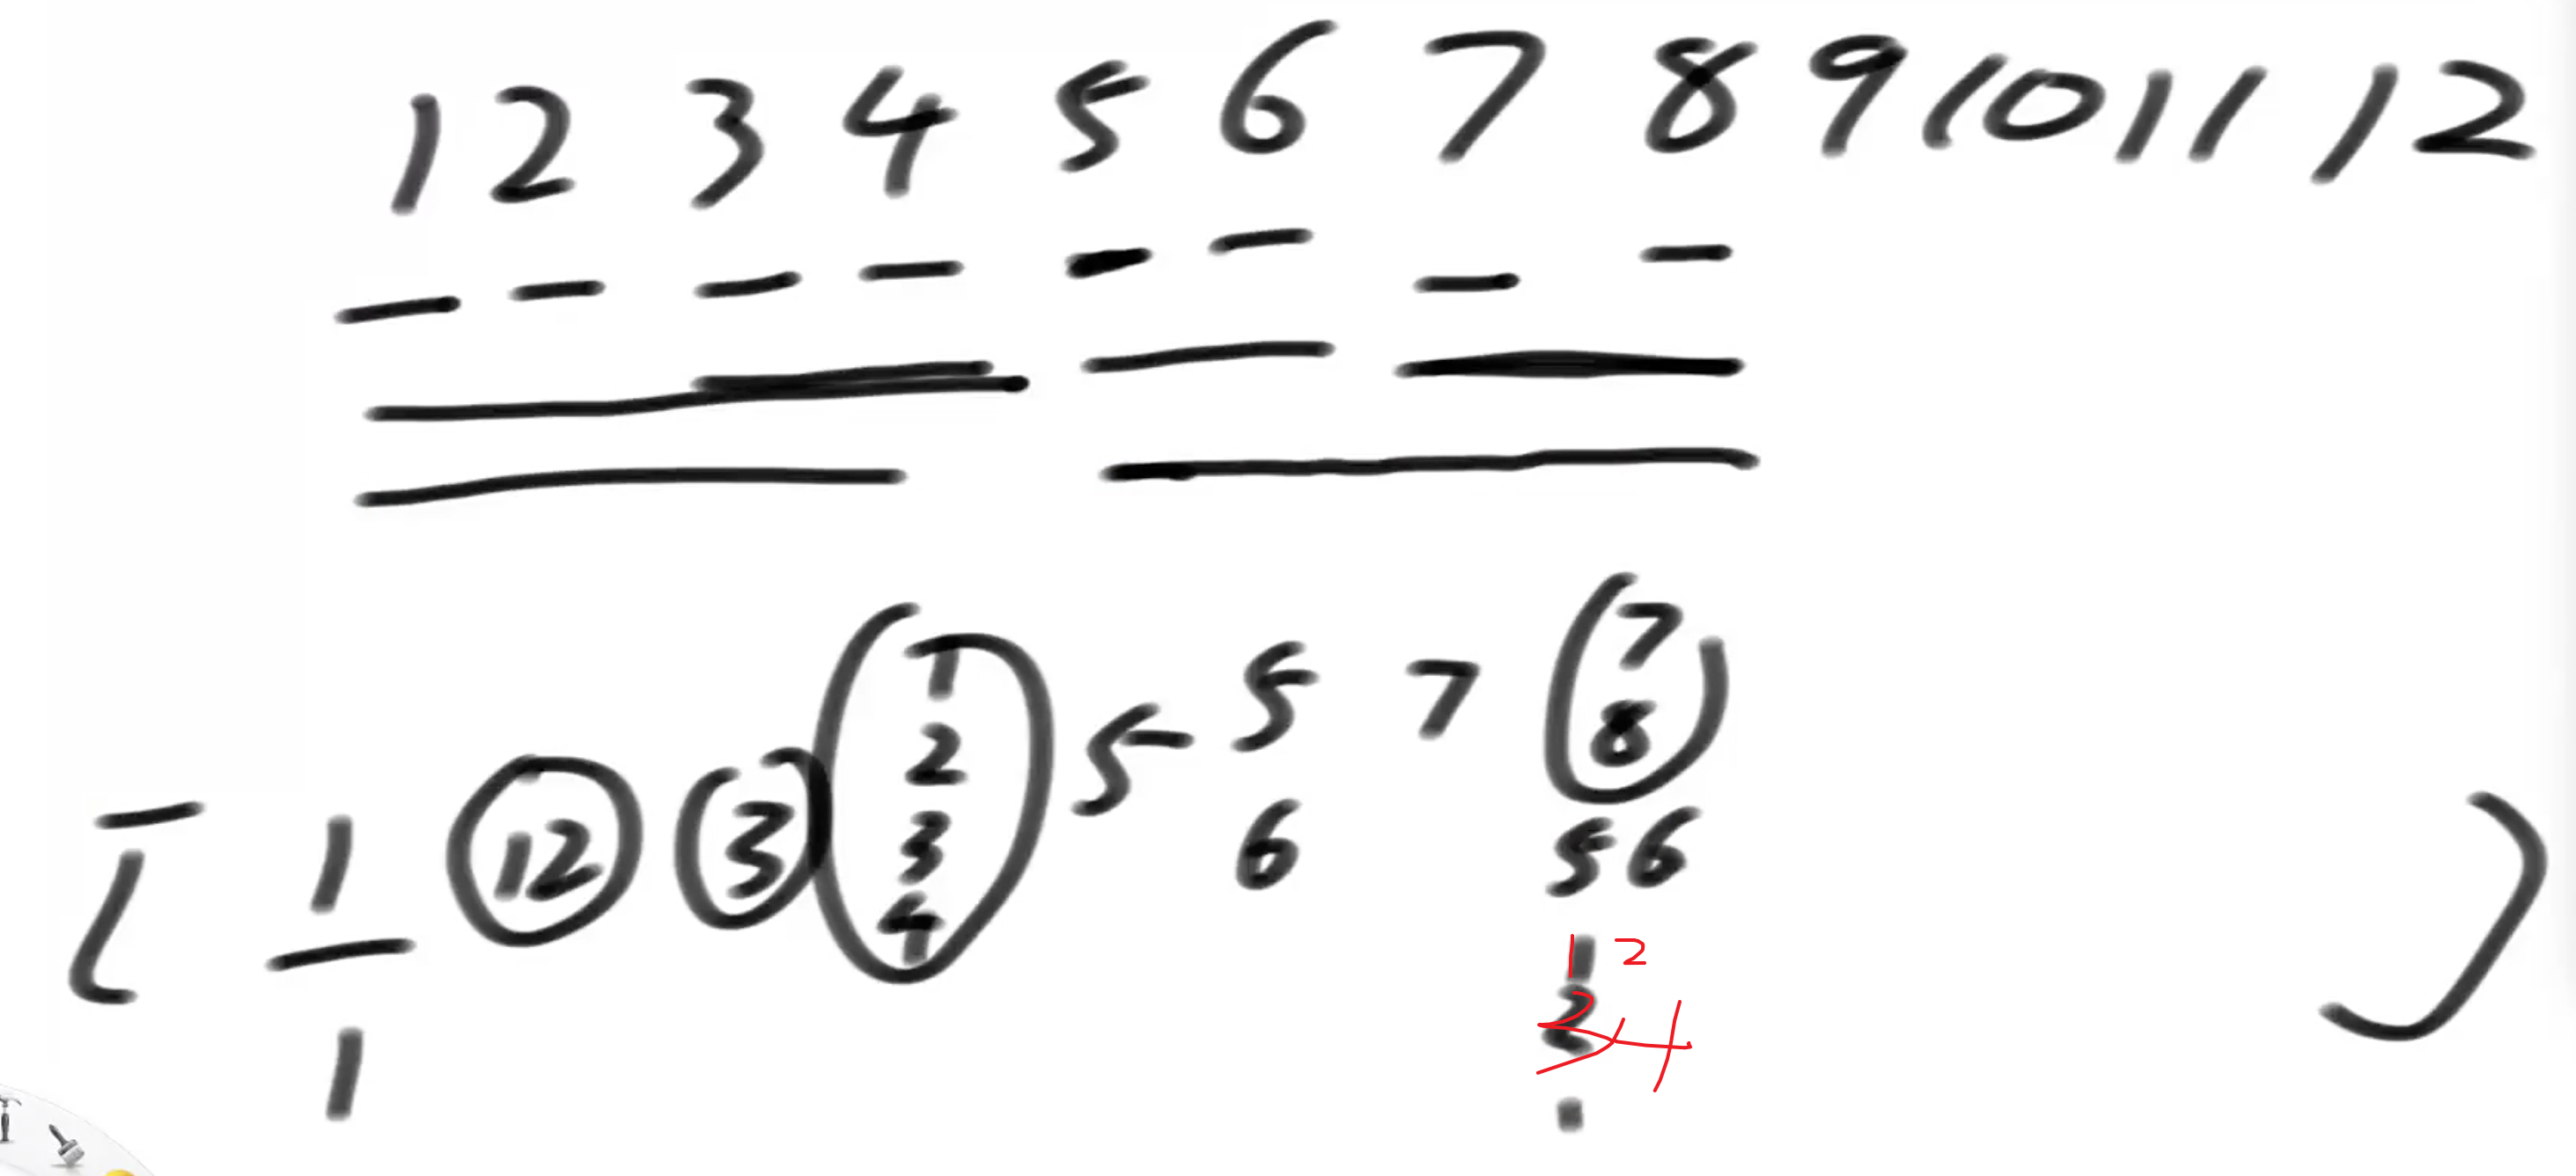 1 2 3 4 5 6 7 8 9 10 11 12
1 12 3 1 5 5 7 7
2 8
3 6 5 6
4 1 2
1 3 4